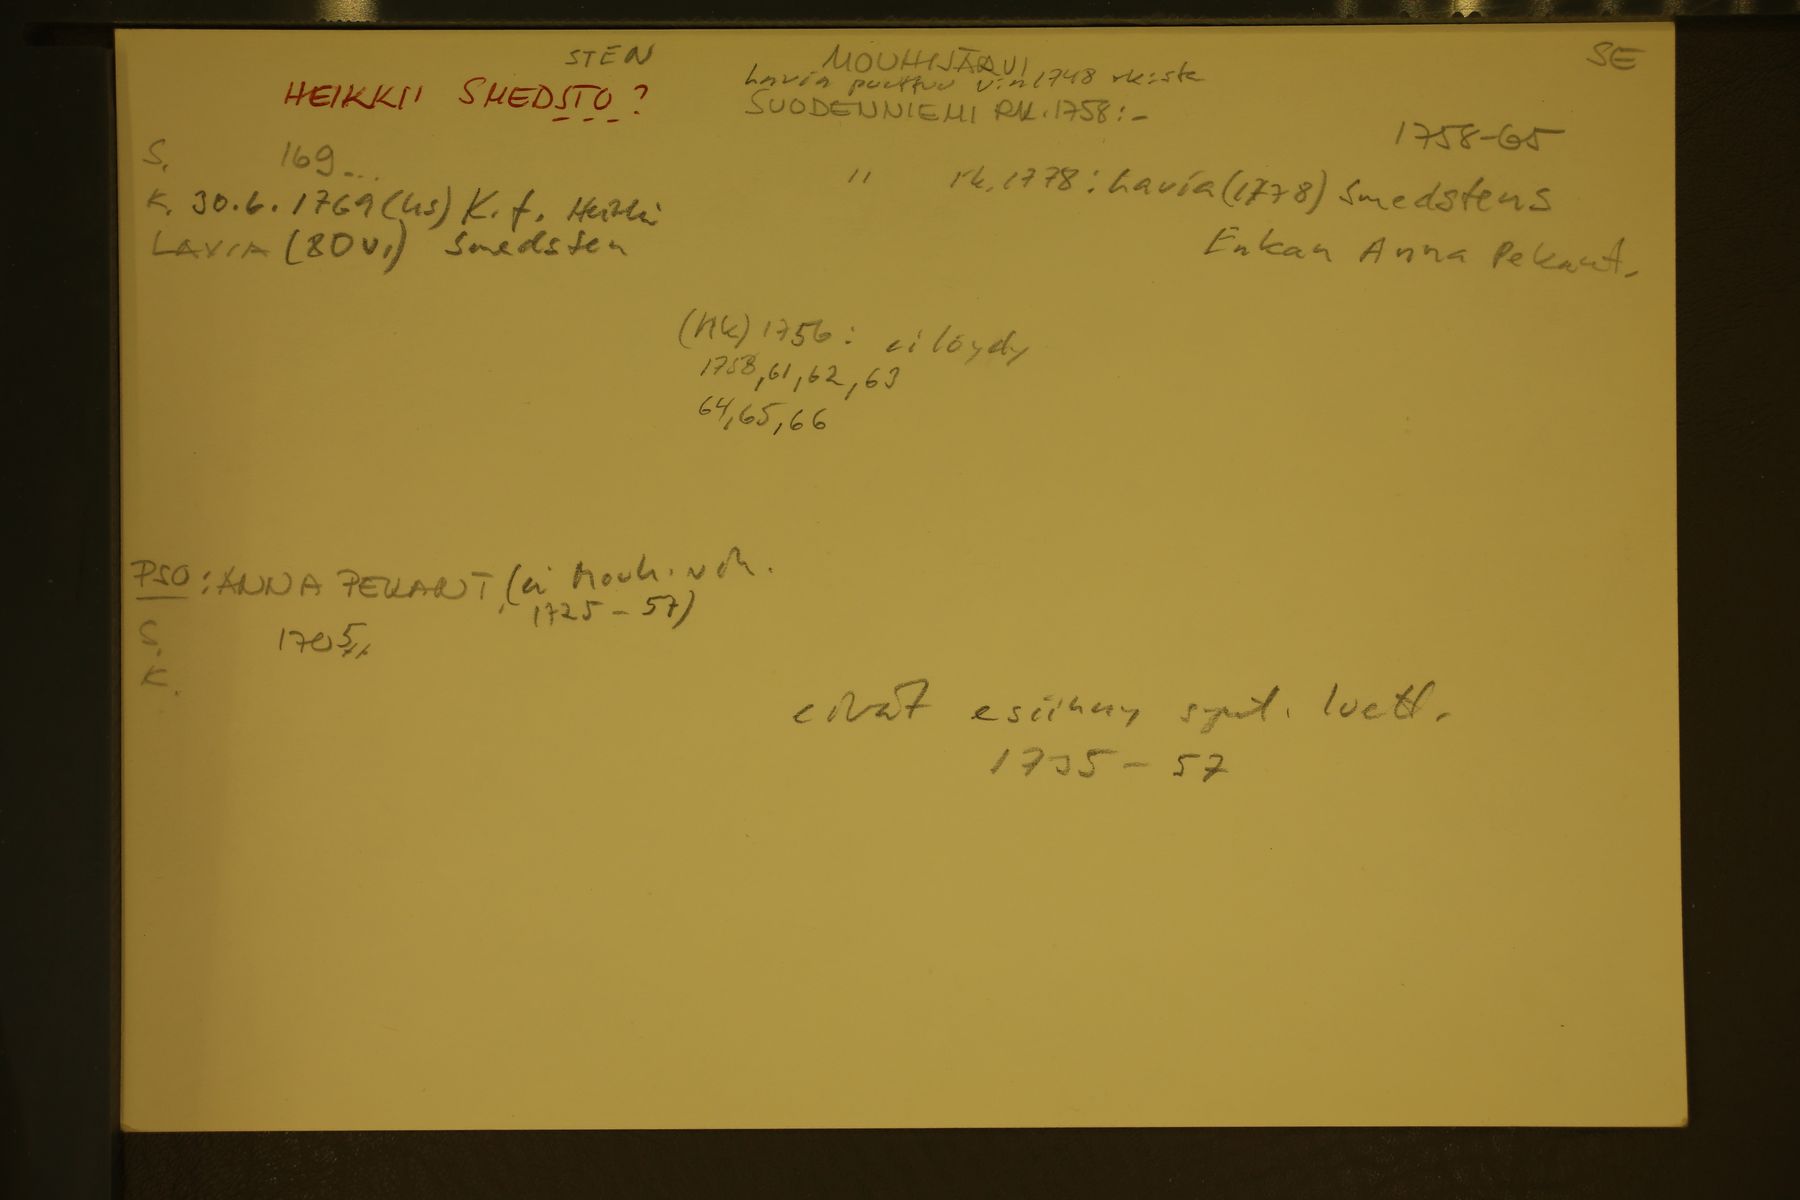 STEN
HEIKKI SMEDSTO?
MOUHIJÄRVI
Lavia puuttuu v:n 1748 rk:sta
SUODENNIEMI RK. 1758: -
SE
1758-65
S. 169...
K. 30.6.1769 (hs) K. f. Heikki
LAVIA (80 v.) Smedsten
" rk. 1778: Lavia (1778) Smedstens
Enkan Anna Pekant.
(Hk) 1756: ei löydy
1758, 61, 62, 63
64, 65, 66
PSO: ANNA PEKANT, (ei Mouh. vih.
1725 - 57)
S. 1705
K.
eivät esiinny synt. luett.
1735 - 57